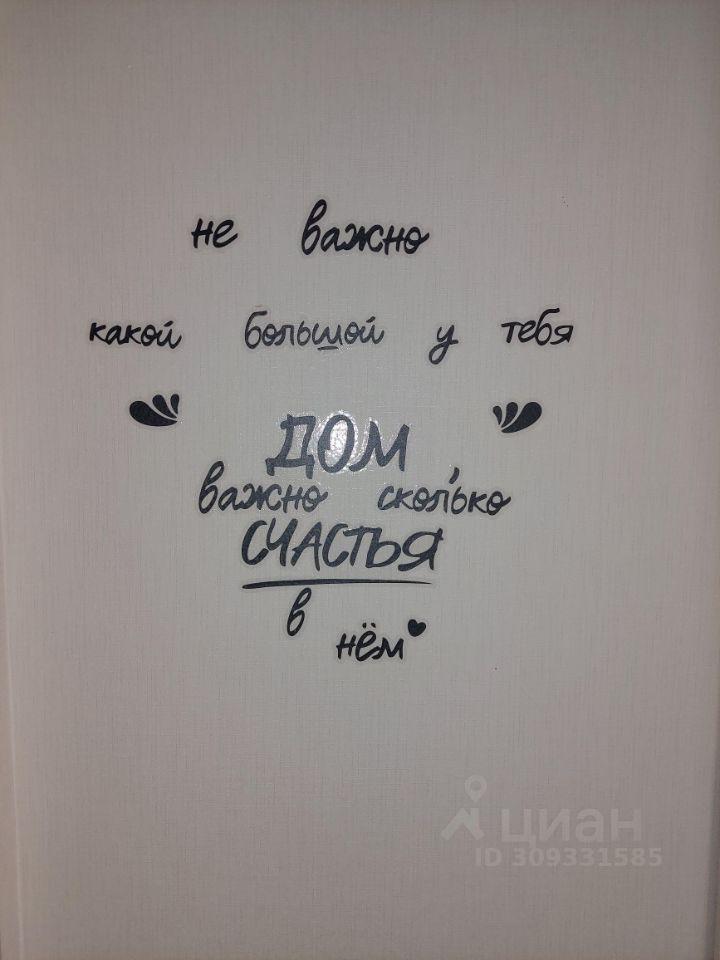 не важно
какой большой у тебя
ДОМ,
важно сколько
СЧАСТЬЯ
в
нём
циан
ID 309331585